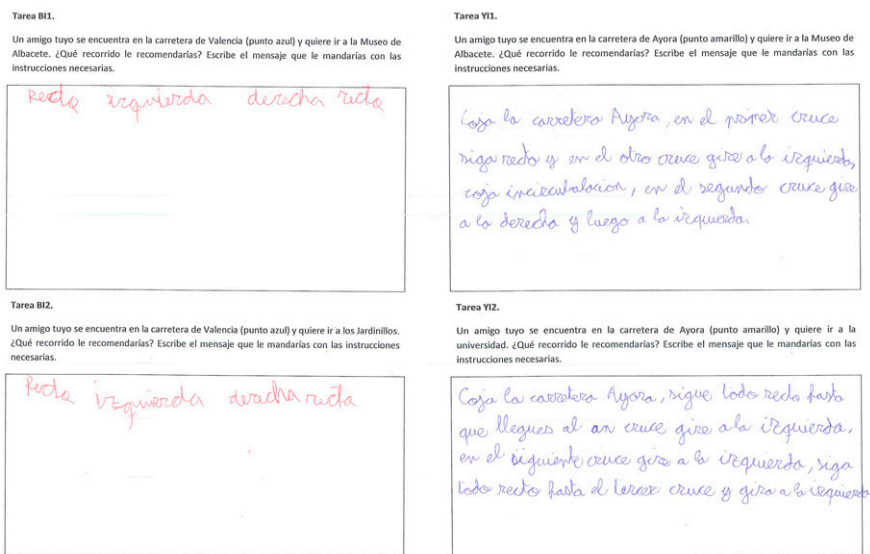 Tarea BI1.
Un amigo tuyo se encuentra en la carretera de Valencia (punto azul) y quiere ir a la Museo de
Albacete. ¿Qué recorrido le recomendarías? Escribe el mensaje que le mandarías con las
instrucciones necesarias.
Recta izquierda derecha recta
Tarea BI2.
Un amigo tuyo se encuentra en la carretera de Valencia (punto azul) y quiere ir a los Jardinillos.
¿Qué recorrido le recomendarías? Escribe el mensaje que le mandarías con las instrucciones
necesarias.
Recta izquierda derecha recta
Tarea YI1.
Un amigo tuyo se encuentra en la carretera de Ayora (punto amarillo) y quiere ir a la Museo de
Albacete. ¿Qué recorrido le recomendarías? Escribe el mensaje que le mandarías con las
instrucciones necesarias.
Coja la carretera Ayora, en el primer cruce
siga recto y en el otro cruce gire a la izquierda,
coja , en el segundo cruce gire
a la derecha y luego a la izquierda.
Tarea YI2.
Un amigo tuyo se encuentra en la carretera de Ayora (punto amarillo) y quiere ir a la
universidad. ¿Qué recorrido le recomendarías? Escribe el mensaje que le mandarías con las
instrucciones necesarias.
Coja la carretera Ayora, sigue todo recto hasta
que llegues al an cruce gire a la izquierda,
en el siguiente cruce gire a la izquierda, siga
todo recto hasta el tercer cruce y gira a la izquierda